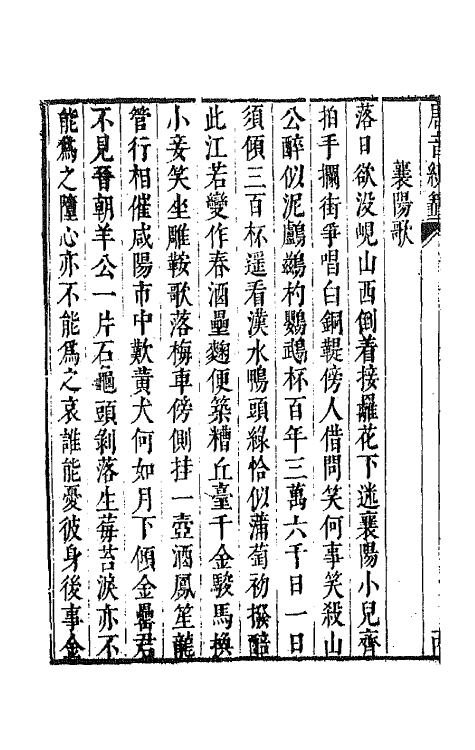 襄陽歌
落日欲没峴山西倒着接䍦花下迷襄陽小兒齊
拍手攔街爭唱白銅鞮傍人借問笑何事笑殺山
公醉似泥鸕鷀杓鸚鵡杯百年三萬六千日一日
須傾三百杯遥看漢水鴨頭綠恰似蒲萄初撥醅
此江若變作春酒壘麴便築糟丘臺千金駿馬換
小妾笑坐雕鞍歌落梅車傍側挂一壺酒鳳笙龍
管行相催咸陽市中歎黃犬何如月下傾金罍君
不見晉朝羊公一片石龜頭剝落生莓苔淚亦不
能爲之墮心亦不能爲之哀誰能憂彼身後事金